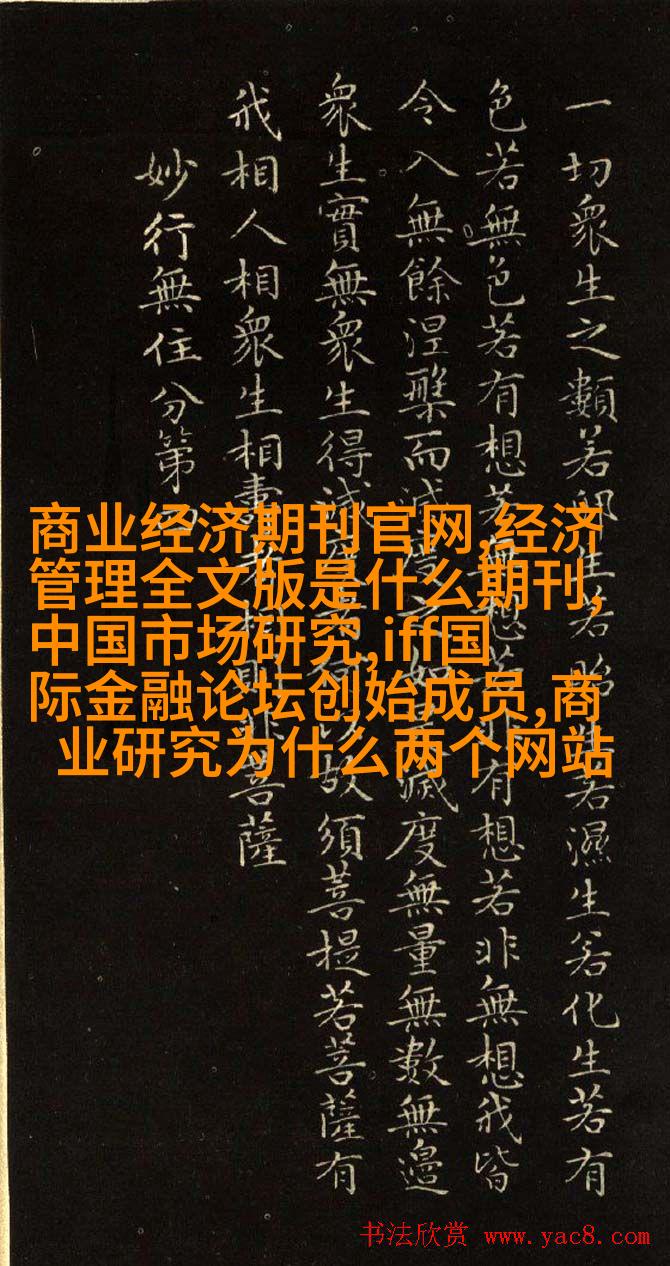 一切衆生之類若卵生若胎生若濕生若化生若有
色若無色若有想若無想若非有想若非無想我皆
令入無餘涅槃而滅度之如是滅度無量無數無邊
衆生實無衆生得滅度者何以故須菩提若菩薩有
我相人相衆生相壽者相則非菩薩
妙行無住分第四
商业经济期刊官网,经济
管理全文版是什么期刊,
中国市场研究,iff国
际金融论坛创始成员,商
业研究为什么两个网站
书法欣赏 www.yac8.com